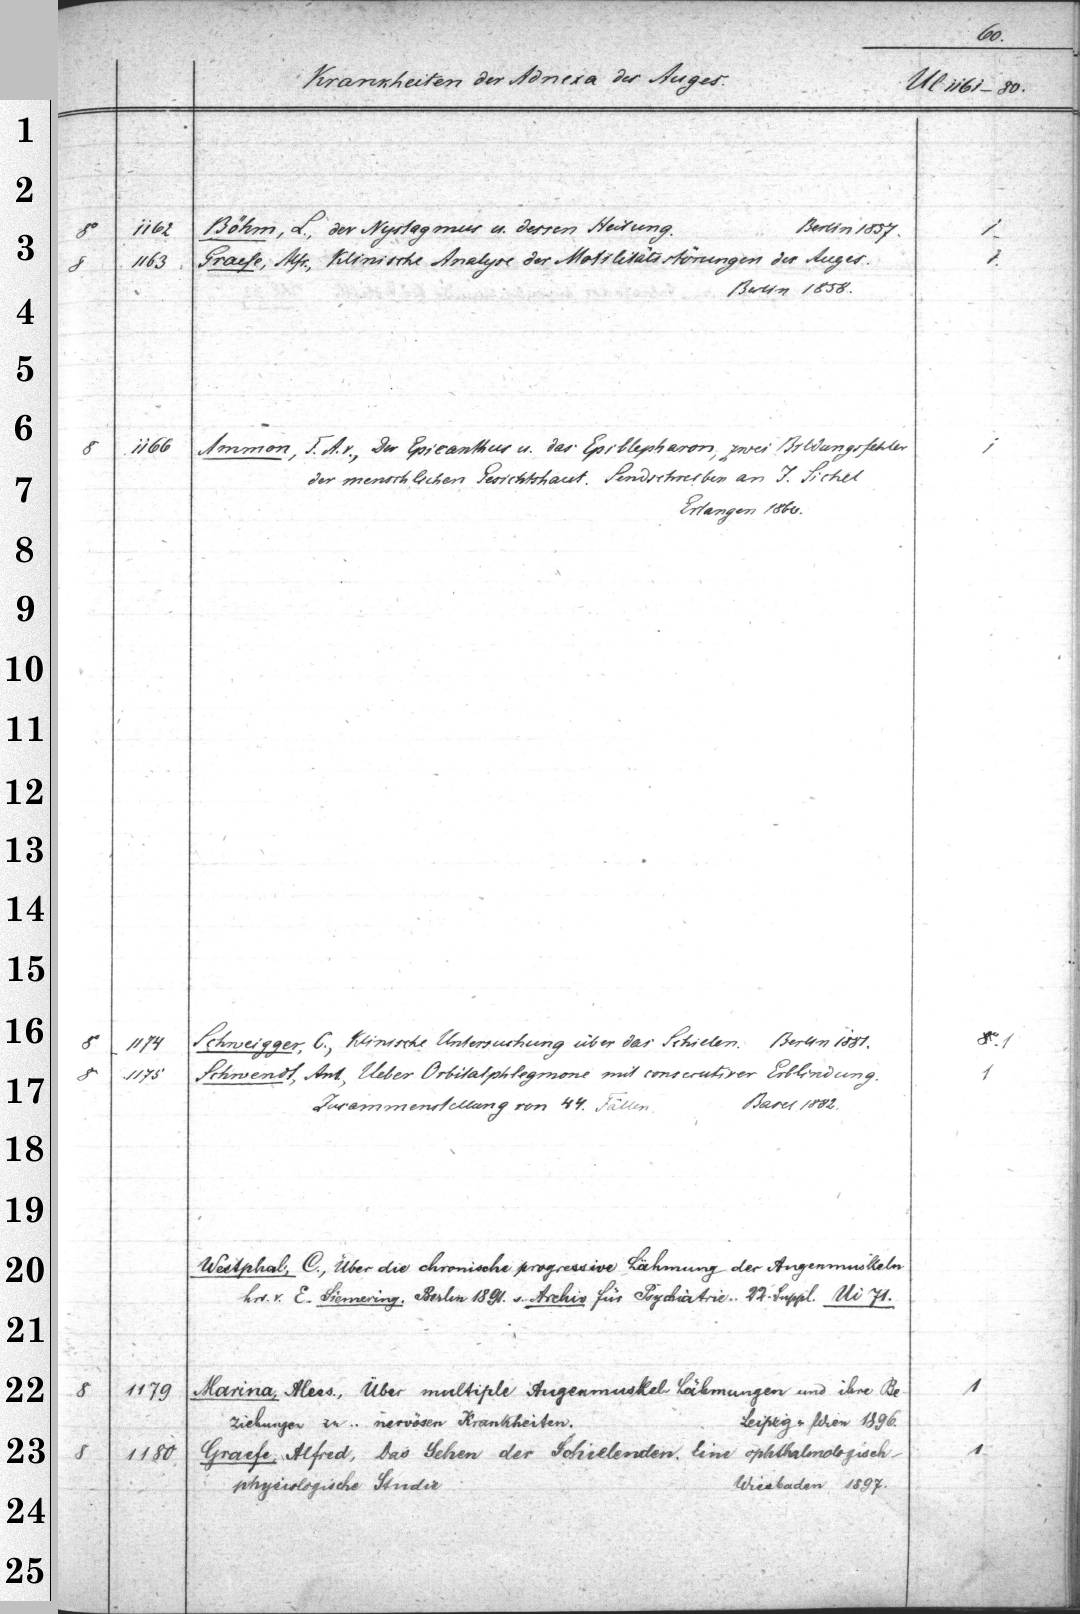 60.
Krankheiten der Adnexa des Auges. Ul 1161-80.
1
2
8° 1162 Böhm, L., der Nystagmus u. dessen Heilung. Berlin 1857. 1
3
8 1163 Graefe, Alfr., Klinische Analyse der Motilitätsstörungen des Auges. 1.
Berlin 1858.
4
5
6
8 1166 Ammon, F. A. v., Der Epicanthus u. das Epiblepharon, zwei Bildungsfehler 1
7
der menschlichen Gesichtshaut. Sendschreiben an J. Sichel
Erlangen 1860.
8
9
10
11
12
13
14
15
16
8 1174 Schweigger, C., Klinische Untersuchung über das Schielen. Berlin 1881. 1
8 1175 Schwendt, Ant., Ueber Orbitalphlegmone mit consecutiver Erblindung. 1
17
Zusammenstellung von 44. Fällen. Basel 1882.
18
19
20
Westphal, C., Über die chronische progressive Lähmung der Augenmuskeln
hrs. v. E. Siemering. Berlin 1891. s. Archiv für Psychiatrie.. 22. Suppl. Ui 71.
21
22
8 1179 Marina, Aless., Über multiple Augenmuskel-Lähmungen und ihre Be- 1
ziehungen zu .. nervösen Krankheiten. Leipzig u. Wien 1896.
23
8 1180 Graefe, Alfred, Das Sehen der Schielenden. Eine ophthalmologisch- 1
physiologische Studie Wiesbaden 1897.
24
25